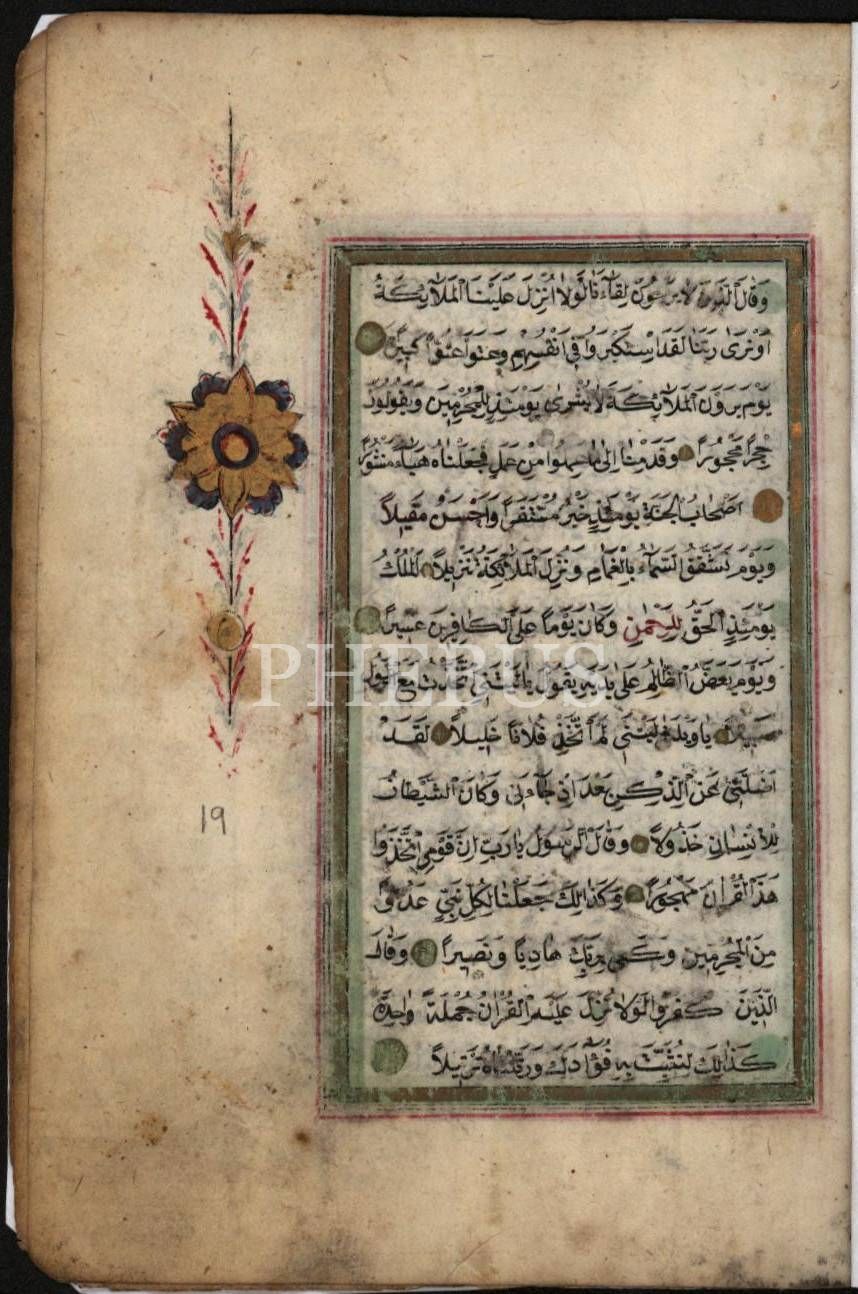 وَقَالَ الَّذِينَ لَا يَرْجُونَ لِقَاءَنَا لَوْلَا أُنْزِلَ عَلَيْنَا الْمَلَائِكَةُ
أَوْ نَرَىٰ رَبَّنَا لَقَدِ اسْتَكْبَرُوا فِي أَنْفُسِهِمْ وَعَتَوْا عُتُوًّا كَبِيرًا
يَوْمَ يَرَوْنَ الْمَلَائِكَةَ لَا بُشْرَىٰ يَوْمَئِذٍ لِلْمُجْرِمِينَ وَيَقُولُونَ
حِجْرًا مَحْجُورًا وَقَدِمْنَا إِلَىٰ مَا عَمِلُوا مِنْ عَمَلٍ فَجَعَلْنَاهُ هَبَاءً مَنْثُورًا
أَصْحَابُ الْجَنَّةِ يَوْمَئِذٍ خَيْرٌ مُسْتَقَرًّا وَأَحْسَنُ مَقِيلًا
وَيَوْمَ تَشَقَّقُ السَّمَاءُ بِالْغَمَامِ وَنُزِّلَ الْمَلَائِكَةُ تَنْزِيلًا الْمُلْكُ
يَوْمَئِذٍ الْحَقُّ لِلرَّحْمَٰنِ وَكَانَ يَوْمًا عَلَى الْكَافِرِينَ عَسِيرًا
وَيَوْمَ يَعَضُّ الظَّالِمُ عَلَىٰ يَدَيْهِ يَقُولُ يَا لَيْتَنِي اتَّخَذْتُ مَعَ الرَّسُولِ
سَبِيلًا يَا وَيْلَتَىٰ لَيْتَنِي لَمْ أَتَّخِذْ فُلَانًا خَلِيلًا لَقَدْ
أَضَلَّنِي عَنِ الذِّكْرِ بَعْدَ إِذْ جَاءَنِي وَكَانَ الشَّيْطَانُ
لِلْإِنْسَانِ خَذُولًا وَقَالَ الرَّسُولُ يَا رَبِّ إِنَّ قَوْمِي اتَّخَذُوا
هَٰذَا الْقُرْآنَ مَهْجُورًا وَكَذَٰلِكَ جَعَلْنَا لِكُلِّ نَبِيٍّ عَدُوًّا
مِنَ الْمُجْرِمِينَ وَكَفَىٰ بِرَبِّكَ هَادِيًا وَنَصِيرًا وَقَالَ
الَّذِينَ كَفَرُوا لَوْلَا نُزِّلَ عَلَيْهِ الْقُرْآنُ جُمْلَةً وَاحِدَةً
كَذَٰلِكَ لِنُثَبِّتَ بِهِ فُؤَادَكَ وَرَتَّلْنَاهُ تَرْتِيلًا
19
PHEBUS